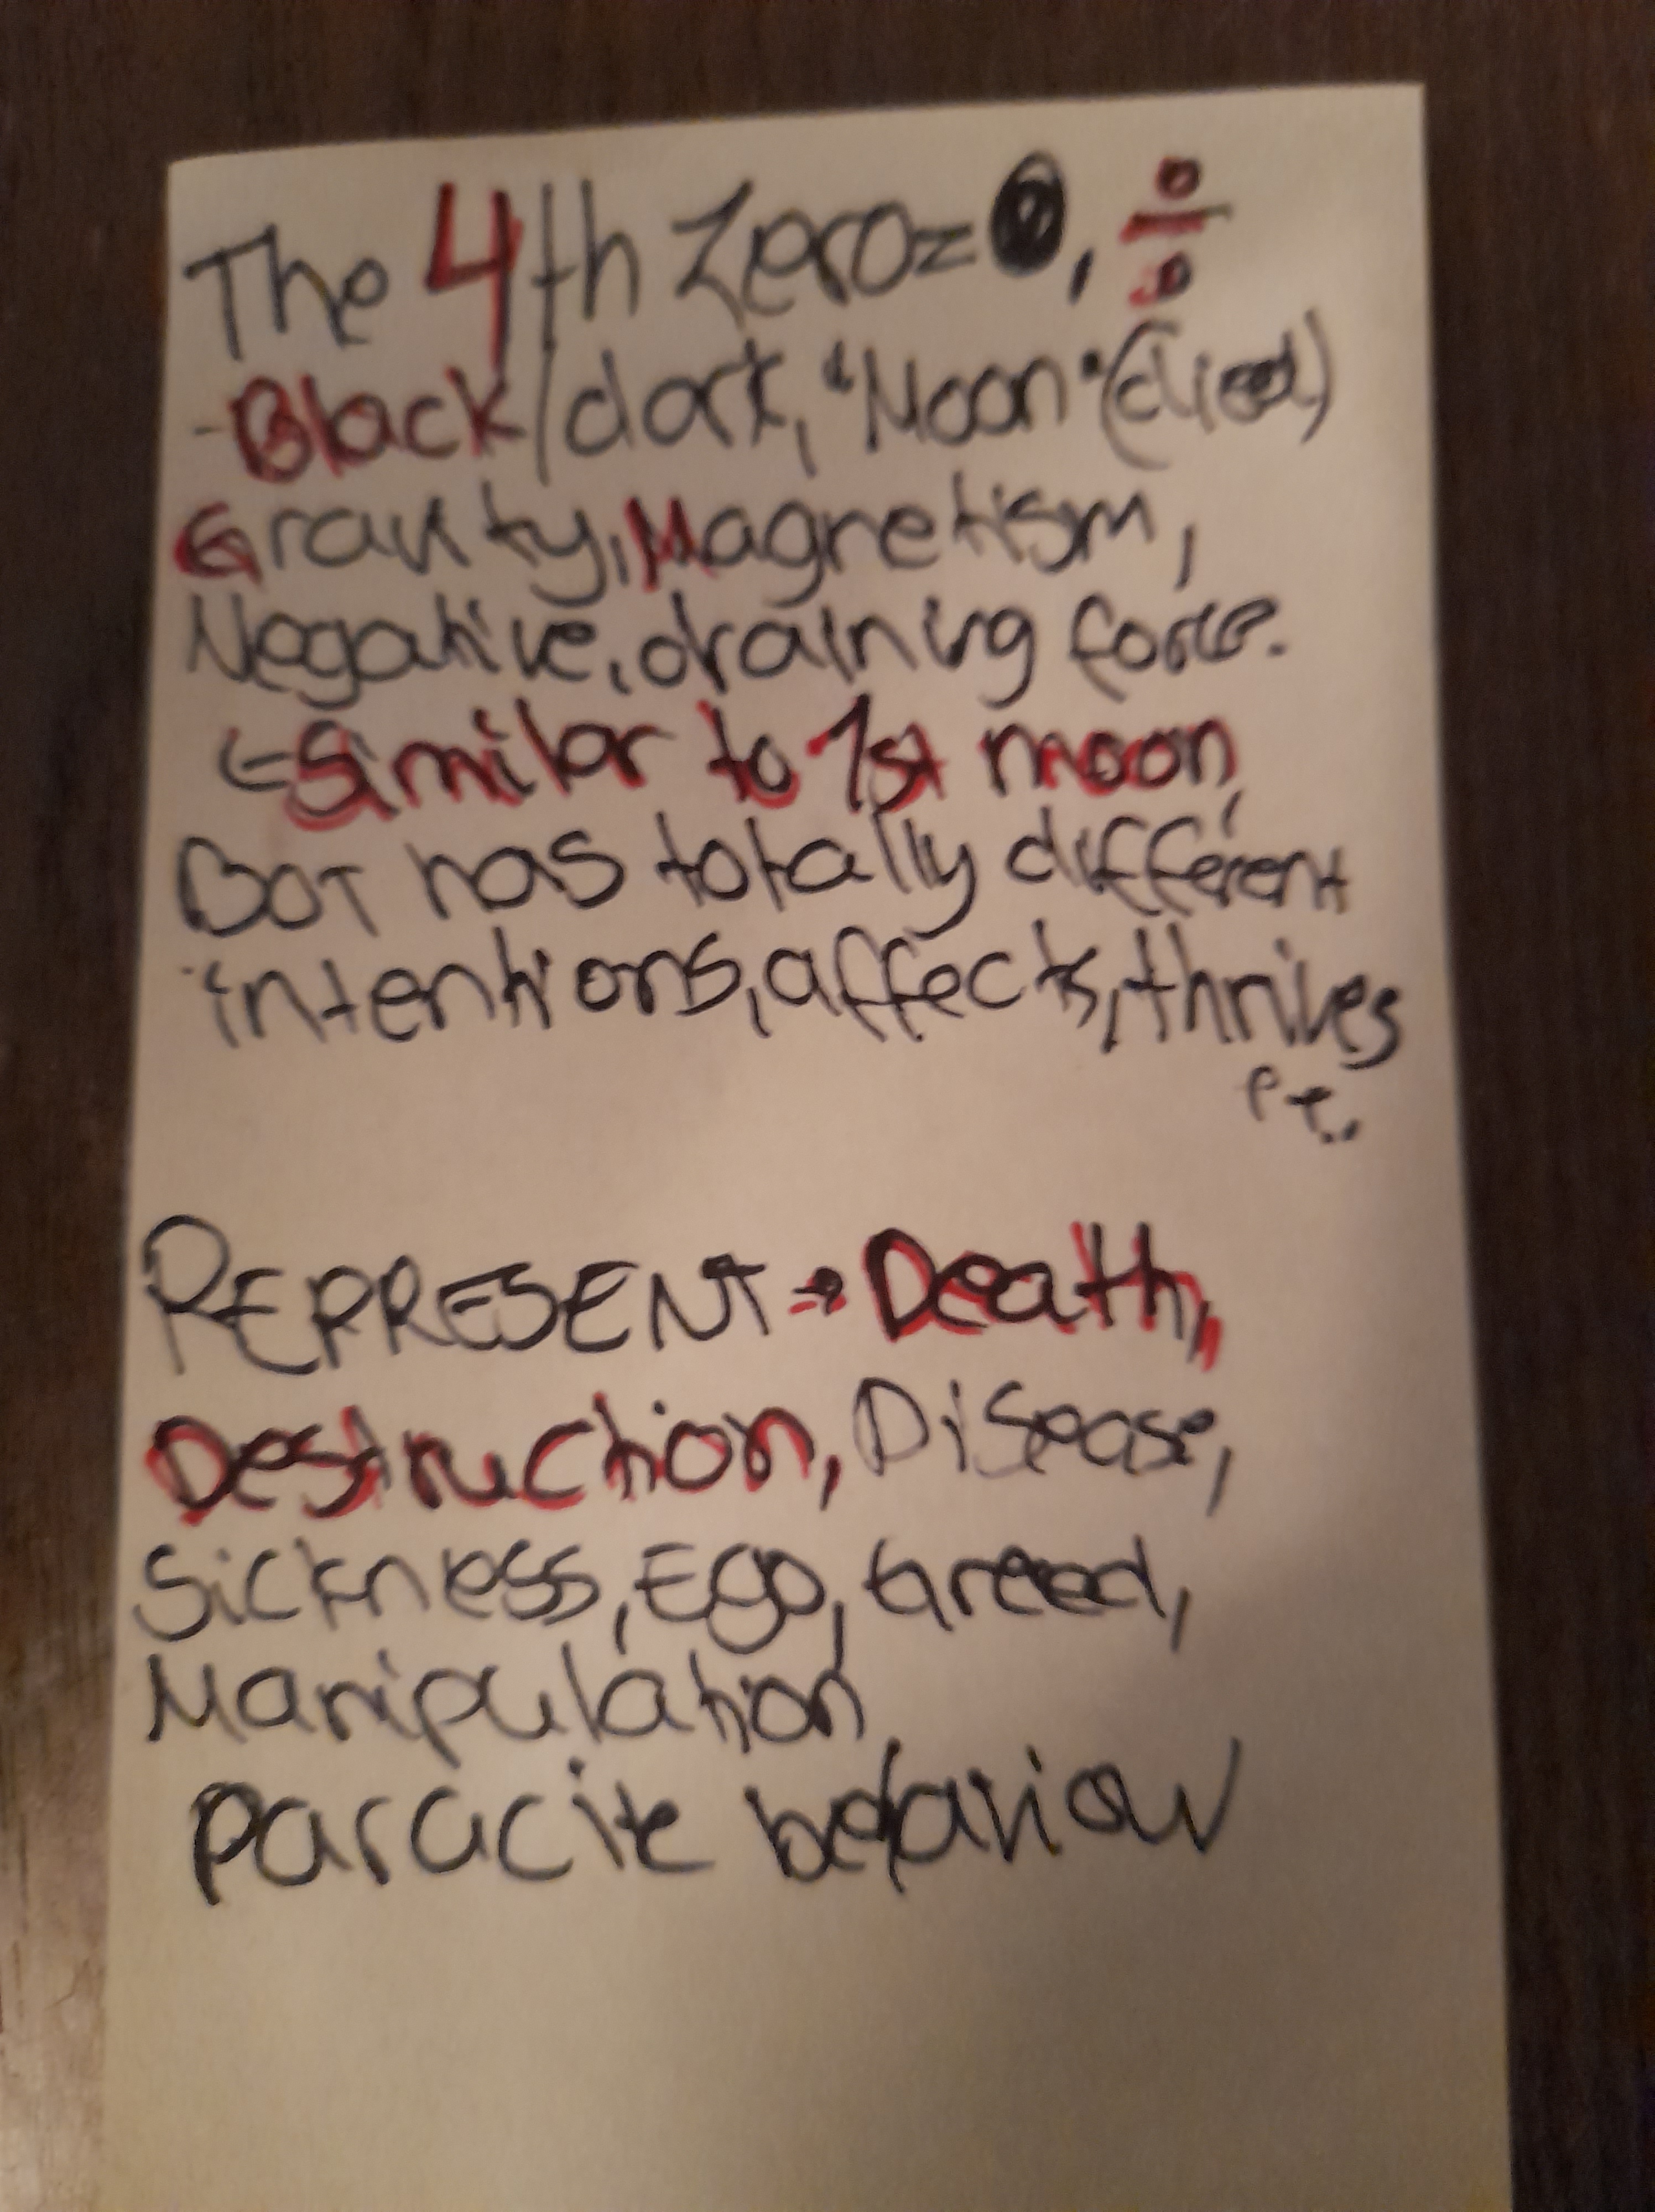 The 4th Zero=0, 0/0
-Black/dark, "Moon" (died)
Gravity, Magnetism,
Negative, draining force.
Similar to 1st moon,
BUT has totally different
intentions, affects, thrives
REPRESENT → Death,
Destruction, Disease,
Sickness, Ego, Greed,
Manipulation,
Paracite behaviour